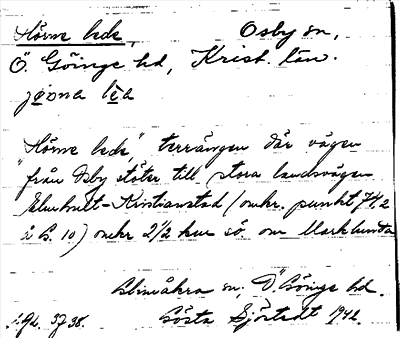 Hörne lede, Osby sn,
Ö. Göinge hd, Krist. län.
"Hörne lede," terrängen där vägen
från Osby stöter till stora landsvägen
Elmhult-Kristianstad (omkr. punkt 74,2
å B. 10) omkr 2 1/2 km sö om Marklunda
Glimåkra sn, Ö. Göinge hd.
Gösta Sjöstedt 1942.